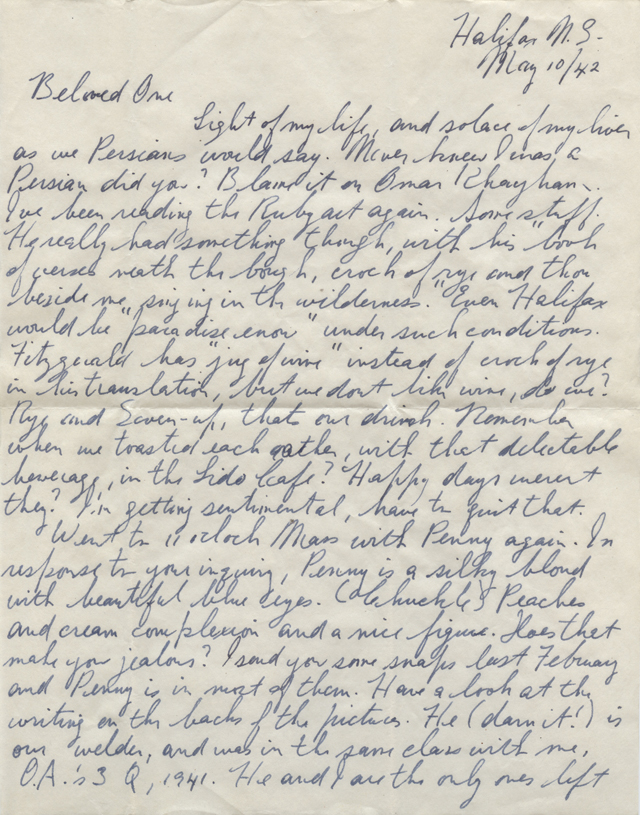 Halifax N.S.
May 10/42
Beloved One
Light of my life, and solace of my liver
as we Persians would say. Never knew I was a
Persian did you? Blame it on Omar Khayham.
I've been reading the Rubyact again. Some stuff.
He really had something though, with his "book
of verses neath the bough, croch of rye and thou
beside me, singing in the wilderness." Even Halifax
would be "paradise enow" under such conditions.
Fitzgerald has "jug of wine" instead of croch of rye
in his translation, but we dont like wine, do we?
Rye and Seven-up, thats our drink. Remember
when we toasted each other, with that delectable
beverage, in the Lido Cafe? Happy days werent
they? I'm getting sentimental, have to quit that.
Went to 11 oclock Mass with Penny again. In
response to your inquiry, Penny is a silky blond
with beautiful blue eyes. (Chuckle) Peaches
and cream complexion and a nice figure. Does that
make you jealous? I send you some snaps last February
and Penny is in most of them. Have a look at the
writing on the backs of the pictures. He (darn it!) is
our welder, and was in the same class with me,
O.A.'s 3 Q, 1941. He and I are the only ones left